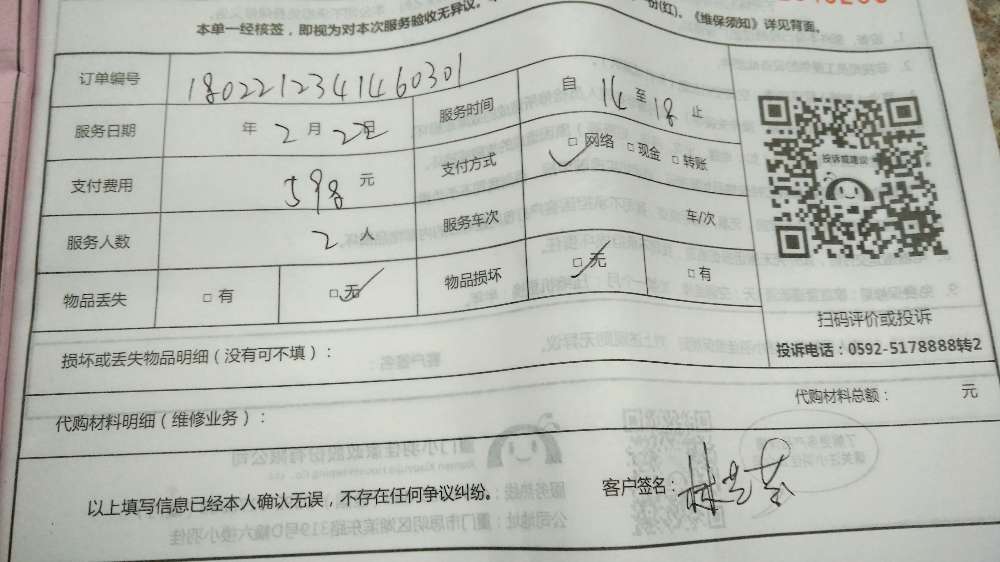 份(红)。《维保须知》详见背面。
本单一经核签，即视为对本次服务验收无异议。
订单编号 180221234146030​1
服务时间 自 14 至 18 止
服务日期 年 2 月 22 日
支付方式 □ 网络 □ 现金 □ 转账
支付费用 598 元
服务车次 车/次
服务人数 2 人
物品丢失 □ 有 □ 无
物品损坏 □ 无 □ 有
投诉或建议
扫码评价或投诉
投诉电话：0592-5178888转2
损坏或丢失物品明细（没有可不填）：
代购材料明细（维修业务）：
代购材料总额： 元
以上填写信息已经本人确认无误，不存在任何争议纠纷。
客户签名：